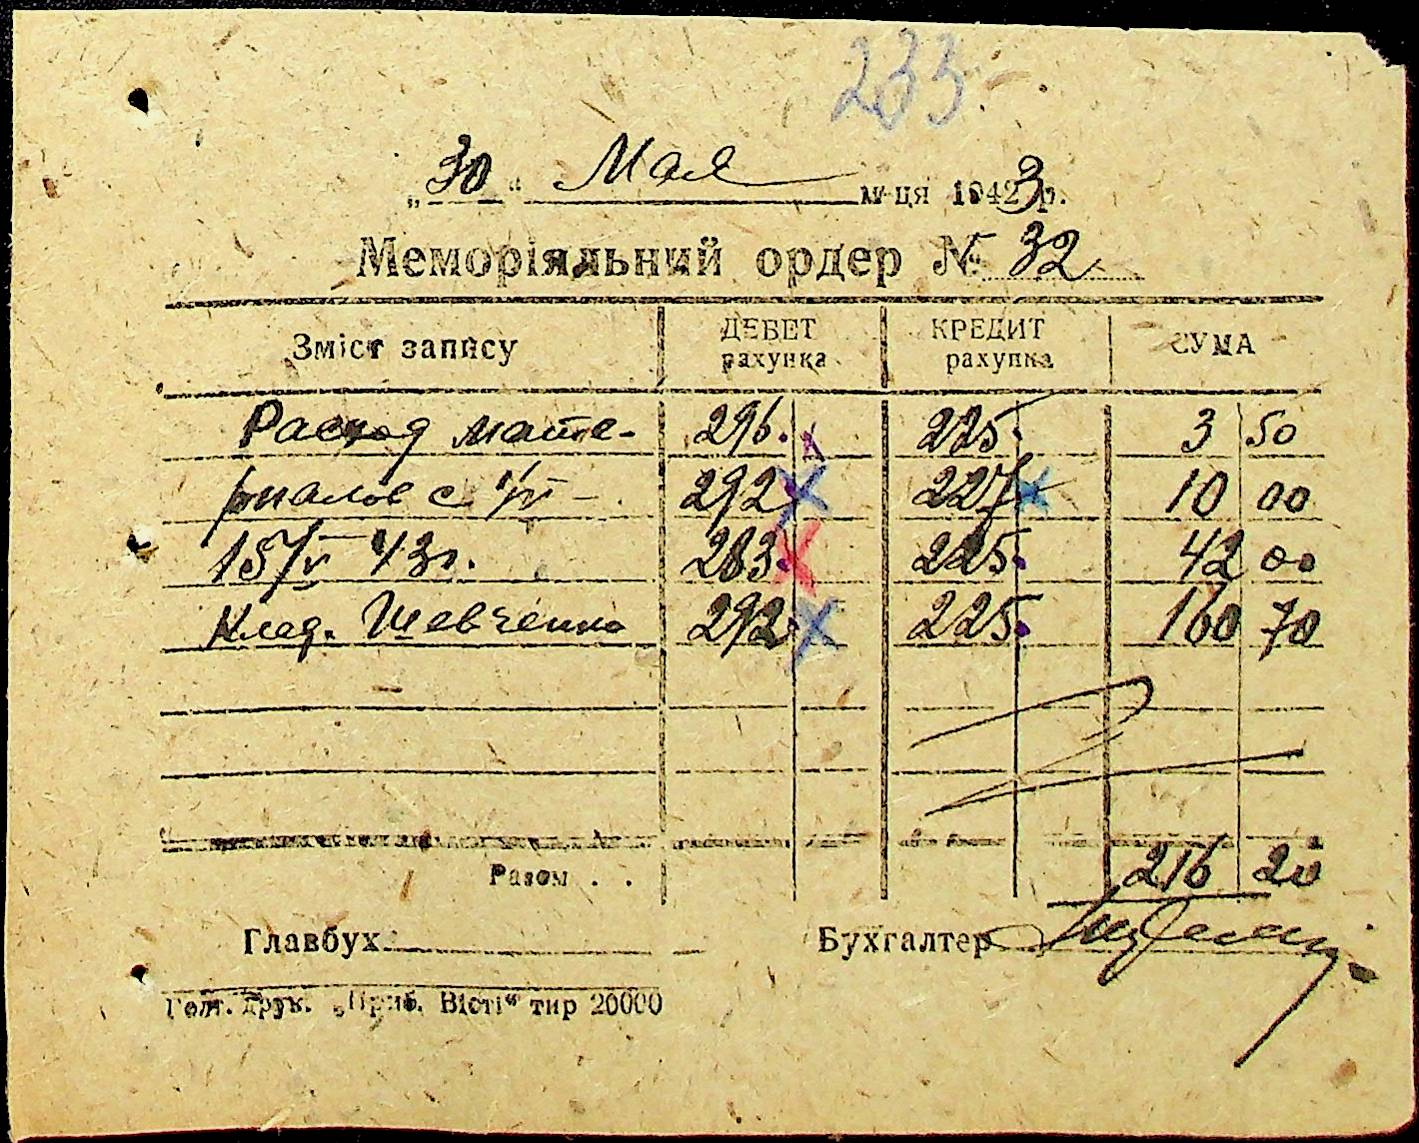 233.
„30“ Мая м-ця 1943 р.
Меморіяльний ордер № 32
Зміст запису ДЕБЕТ рахунка КРЕДИТ рахунка СУМА
Расход мате- 296. 225. 3 50
риалов с 1/V - 292 227 10 00
15/V 43г. 283. 225. 42 00
Клад. Шевченко 292 225. 160 70
Разом . . 216 20
Главбух Бухгалтер
Голт. друк. „Приб. Вісті“ тир 20000